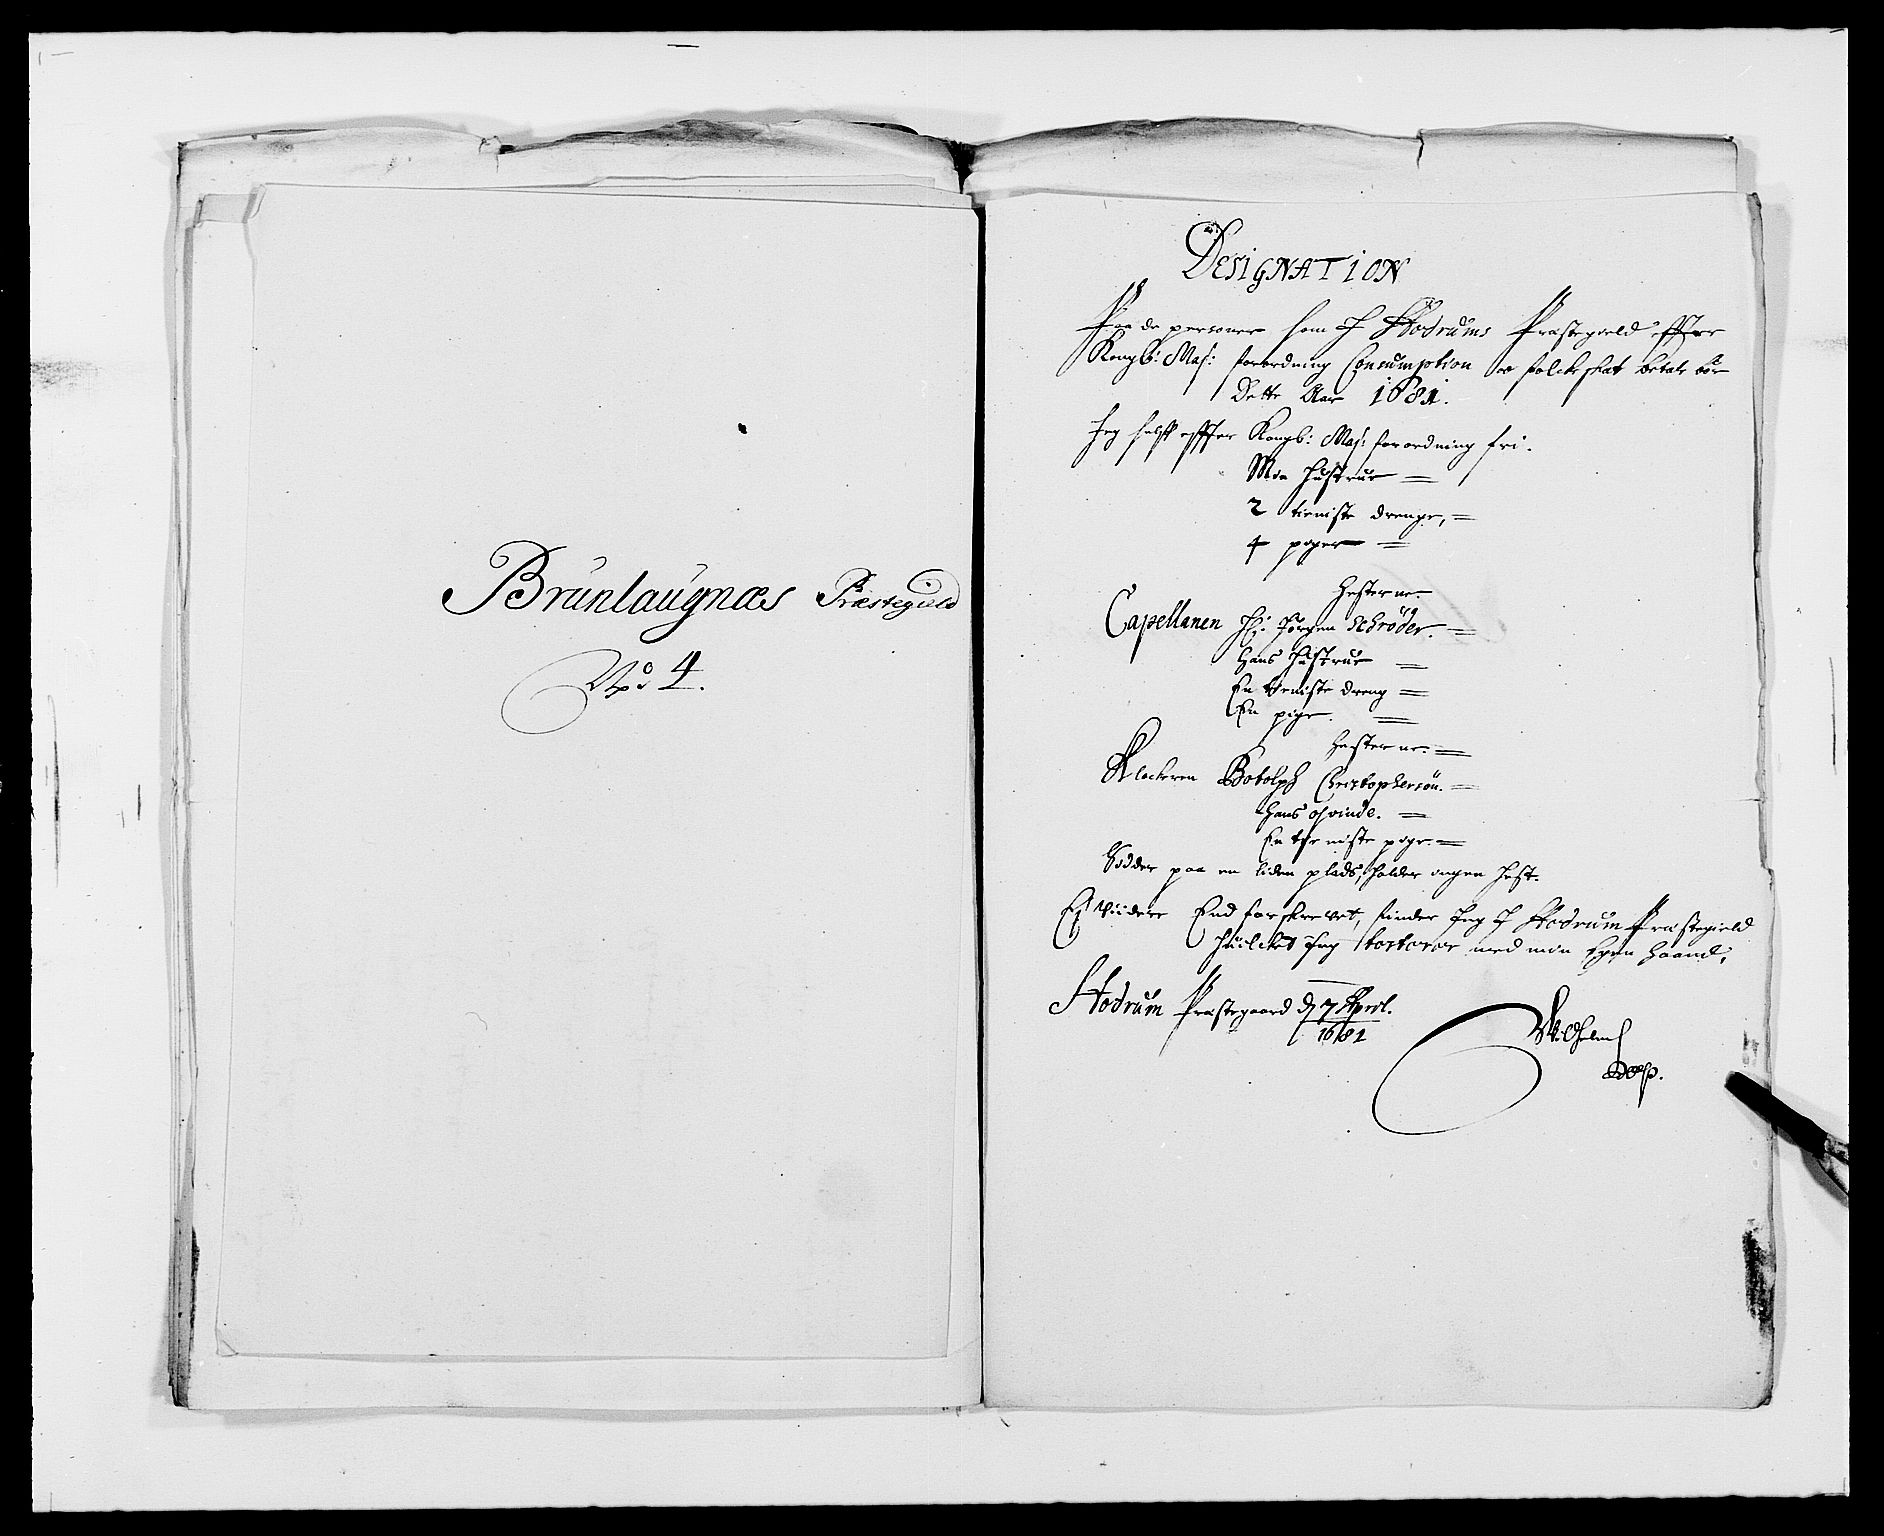 Brunlaugnæs Præstegield
No 4.
DESIGNATION
Paa de personer som J Hedrums Præstegield effter
Kongl: Maj: forordning Consumption oc folckeskat betale bør
Dette Aar 1681.
Jeg selff effter Kongl: Maj: forordning fri.
Min Hustrue =
2 tieniste drenge, =
4 piger =
Hester ne.
Capellanen Hr: Jørgen Schrøder. =
Hans Hustrue =
En tieniste dreng =
En pige. =
Hester ne. =
Klockeren Botolph Christophersøn. =
Hans Qvinde. =
En tieniste pige. =
Sidder paa en liden plads, holder ingen Hest.
Ej viidere End forskrevet, finder Jeg J Hedrum Præstegield
Huilcket Jeg med min Egen Haand,
Hedrum Præstegaard d 7 April.
1681
Wilhelm